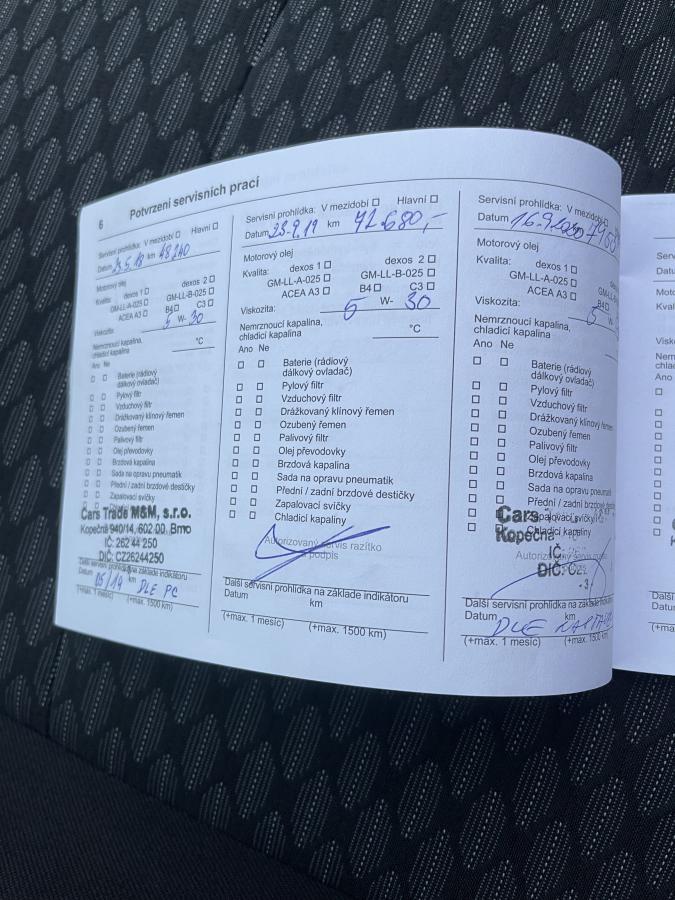 6 Potvrzení servisních prací
Servisní prohlídka: V mezidobí Hlavní
Datum 23.5.18 km 48240
Motorový olej
Kvalita: dexos 1 dexos 2
GM-LL-A-025 GM-LL-B-025
ACEA A3 B4 C3
Viskozita: 5 W- 30
Nemrznoucí kapalina,
chladicí kapalina °C
Ano Ne
Baterie (rádiový
dálkový ovladač)
Pylový filtr
Vzduchový filtr
Drážkovaný klínový řemen
Ozubený řemen
Palivový filtr
Olej převodovky
Brzdová kapalina
Sada na opravu pneumatik
Přední / zadní brzdové destičky
Zapalovací svíčky
Cars Trade M&M, s.r.o.
Kopečná 940/14, 602 00 Brno
IČ: 262 44 250
DIČ: CZ26244250
Další servisní prohlídka na základě indikátoru
Datum 05/19 km DLE PC
(+max. 1 měsíc) (+max. 1500 km)
Servisní prohlídka: V mezidobí Hlavní
Datum 23.9.19 km 72 680,-
Motorový olej
Kvalita: dexos 1 dexos 2
GM-LL-A-025 GM-LL-B-025
ACEA A3 B4 C3
Viskozita: 5 W- 30
Nemrznoucí kapalina,
chladicí kapalina °C
Ano Ne
Baterie (rádiový
dálkový ovladač)
Pylový filtr
Vzduchový filtr
Drážkovaný klínový řemen
Ozubený řemen
Palivový filtr
Olej převodovky
Brzdová kapalina
Sada na opravu pneumatik
Přední / zadní brzdové destičky
Zapalovací svíčky
Chladicí kapaliny
Autorizovaný servis razítko
podpis
Další servisní prohlídka na základě indikátoru
Datum km
(+max. 1 měsíc) (+max. 1500 km)
Servisní prohlídka: V mezidobí
Datum 16.9.2020
Motorový olej
Kvalita: dexos 1
GM-LL-A-025
ACEA A3 B4
Viskozita: 5 W-
Nemrznoucí kapalina,
chladicí kapalina
Ano Ne
Baterie (rádiový
dálkový ovladač)
Pylový filtr
Vzduchový filtr
Drážkovaný klínový řemen
Ozubený řemen
Palivový filtr
Olej převodovky
Brzdová kapalina
Sada na opravu pneumatik
Přední / zadní brzdové
Zapalovací svíčky
Chladicí kapaliny
Cars
Kopečná
IČ:
DIČ: CZ
- 3 -
Další servisní prohlídka na základě
Datum DLE km
(+max. 1 měsíc) (+max. 1500 km)